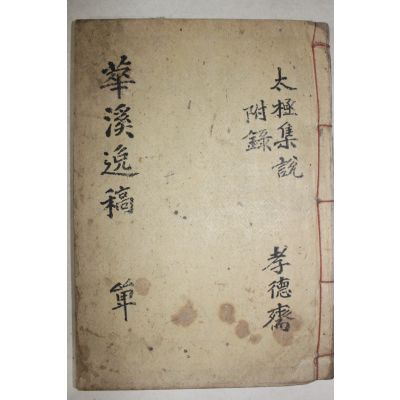 太極集說
附錄
孝德齋
華溪逸稿
單